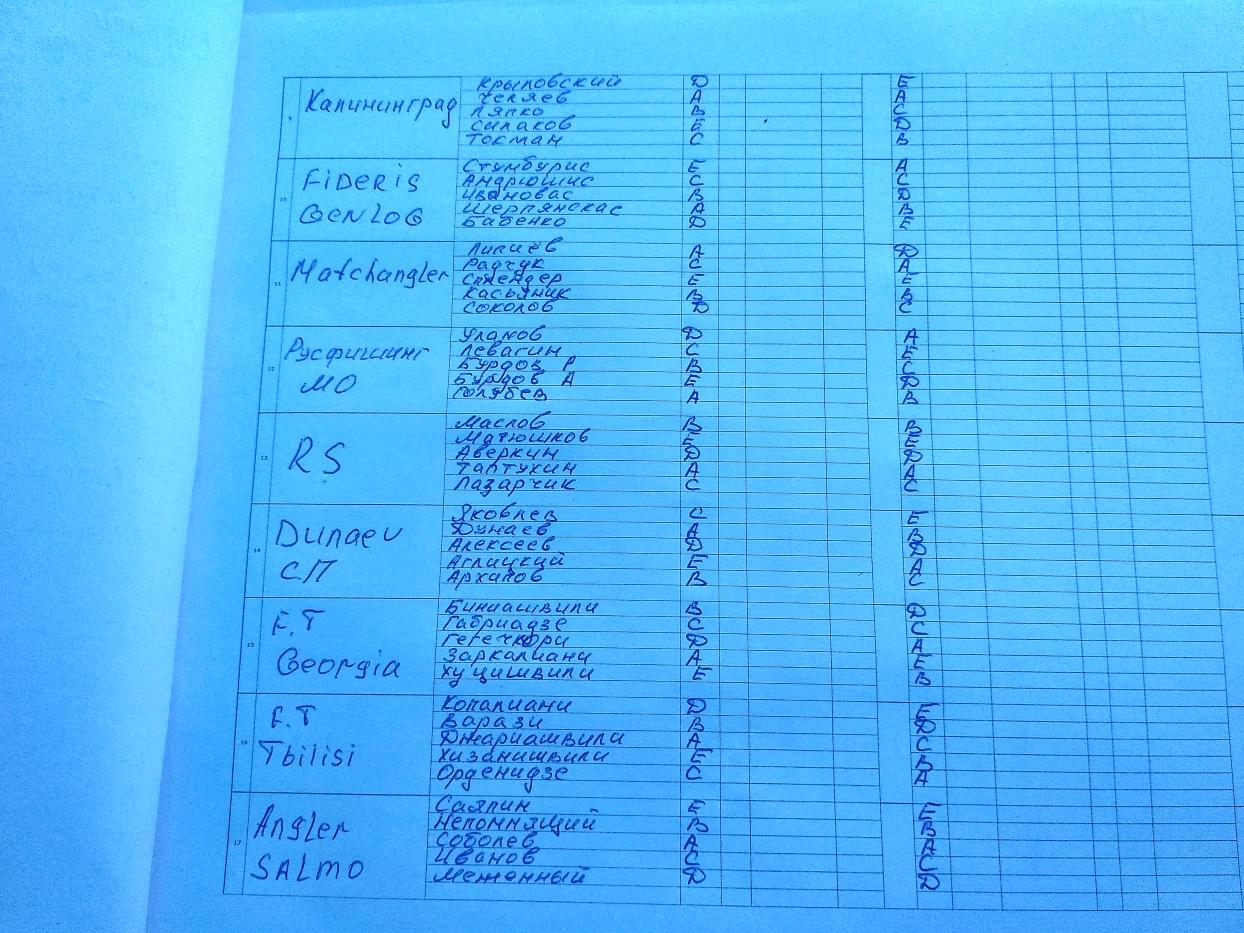 Калининград
Крыловский D E
Челяев A A
Ляпко B C
Силаков E D
Токман C B
10 FiDeris GenLOG
Стумбурис E A
Андрюшис C C
Ивановас B D
Шерпянскас A B
Бабенко D E
11 Matchangler
Липаёв A D
Радчук C A
E E
Касьяник B B
Соколов D C
12 Русфишинг МО
Уланов D A
Левагин C E
Бурдов Р B C
Бурдов А E D
Голубев A B
13 RS
Маслов B B
Матюшков E E
Аверкин D D
Таптухин A A
Лазарчик C C
14 Dunaev СП
Яковлев C E
Дунаев A B
Алексеев D D
Аглицкий E A
Архапов B C
15 F.T Georgia
Биниашвили B D
Габриадзе C C
Гегечкори D A
Заркалиани A E
Хуцишвили E B
16 F.T Tbilisi
Копалиани D E
Варази B D
Джариашвили A C
Хизанишвили E B
Орденидзе C A
17 AngLer SALmO
Саяпин E E
Непомнящий B B
Соболев A A
Иванов C C
Меженный D D